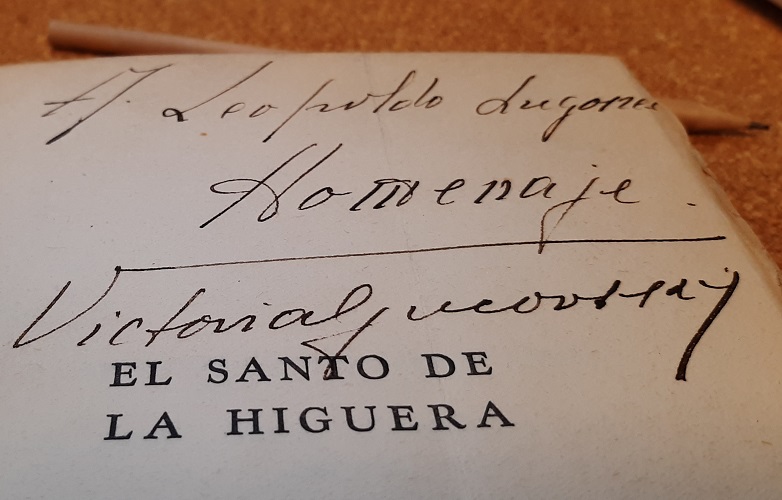 A. Leopoldo Lugones
Homenaje.
Victoria Gucovsky
EL SANTO DE
LA HIGUERA